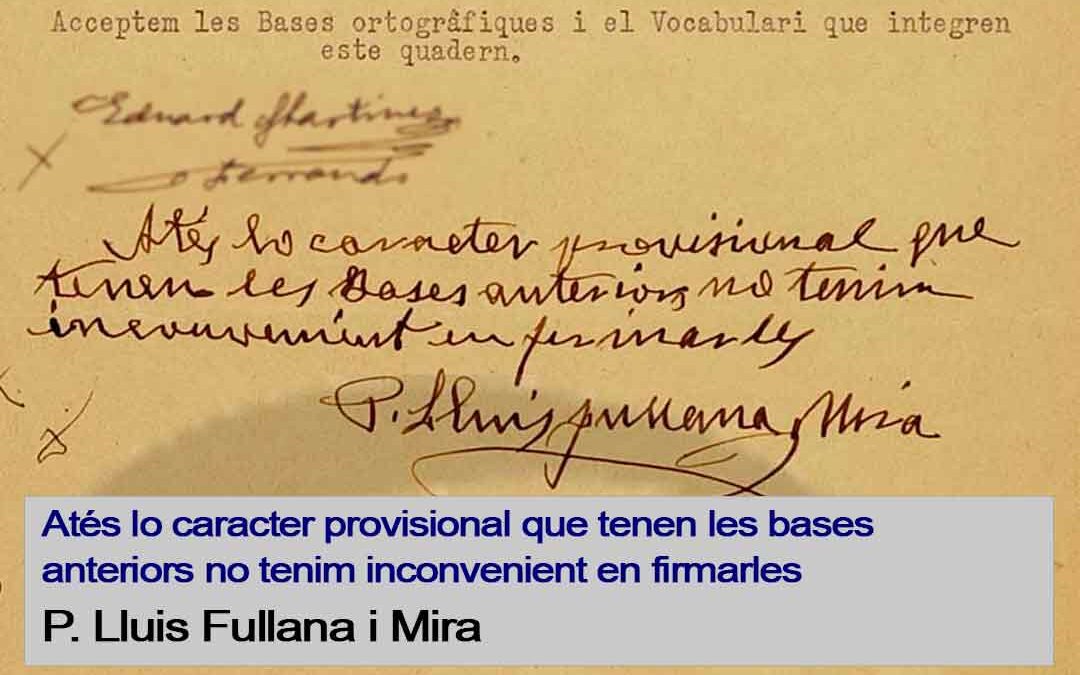 Acceptem les Bases ortogrâfiques i el Vocabulari que integren
este quadern.
Eduard Martinez
Ferrando
Atés lo caracter provisional que
tenen les Bases anteriors no tenim
inconvenient en firmarles
P. Lluis Fullana Mira
Atés lo caracter provisional que tenen les bases
anteriors no tenim inconvenient en firmarles
P. Lluis Fullana i Mira